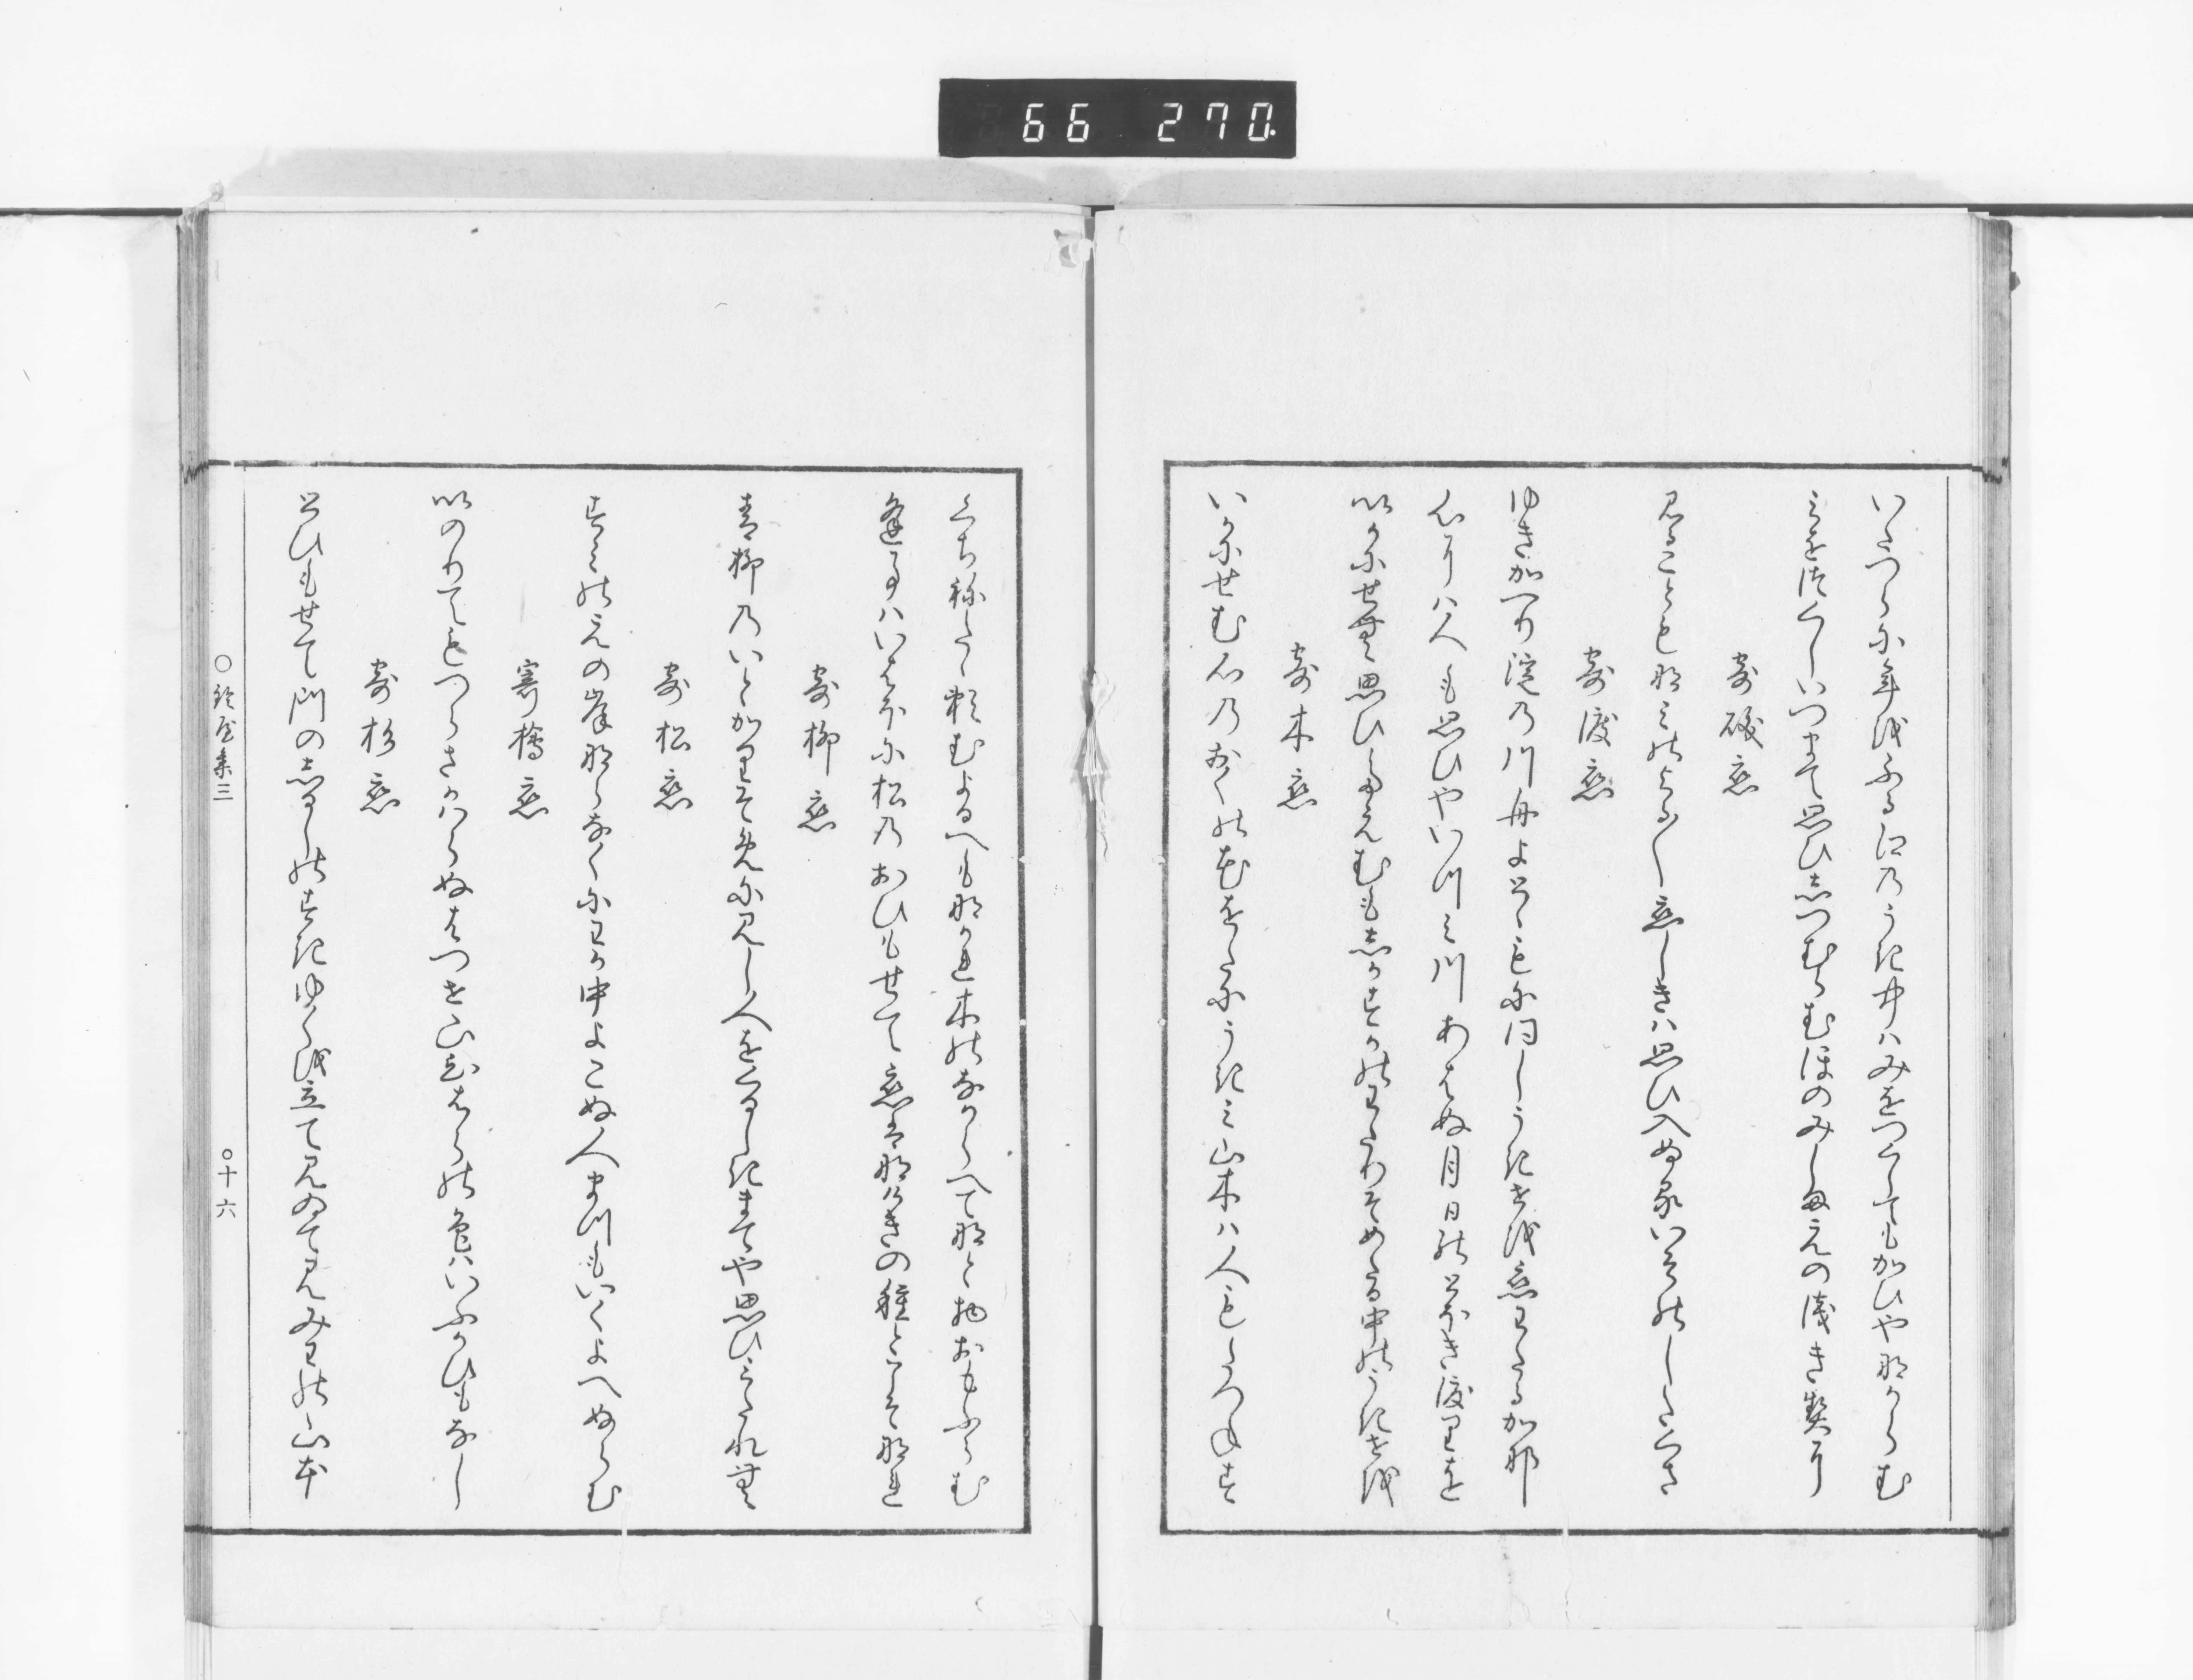 66 270
いたつらに年をふる江のうき中はみをつくしてもかひやなからむ
みをつくしいつまて思ひしつむらむほのみしまえの浅き契り
寄礒恋
見ることもなみのよる〳〵恋しきは思ひ入ぬるいそのしたくさ
寄渡恋
ゆき加へり淀の川舟よとゝもに同しうきせを恋わたる加那
心り八人も思ひやいつみ川あはぬ月日のとほき渡りを
いかにせむ思ひたえむもしかすかのわたりそめたる中のうきせを
寄木恋
いかにせむ石のおくのむをたにうきみ山木は人もしらつゆす
くち祢たゝ頼むよるへもなかれ木のなからへてなと物おもふらむ
逢事はいはほに松のおひもせて恋はなけきの種とこそなれ
寄柳恋
青柳のいとかりそめに見し人をくるしきまてや思ひみたれむ
寄松恋
すみのえの岸ならなくにわか中よこぬ人まつもいくよへぬらむ
寄檜恋
いのりてもつらさかはらぬはつせ山ひはらの色はいふかひもなし
寄杉恋
とひもせて門のしるしのすきゆくを立て見ゐて見みわの山本
○鈴屋集三
○十六